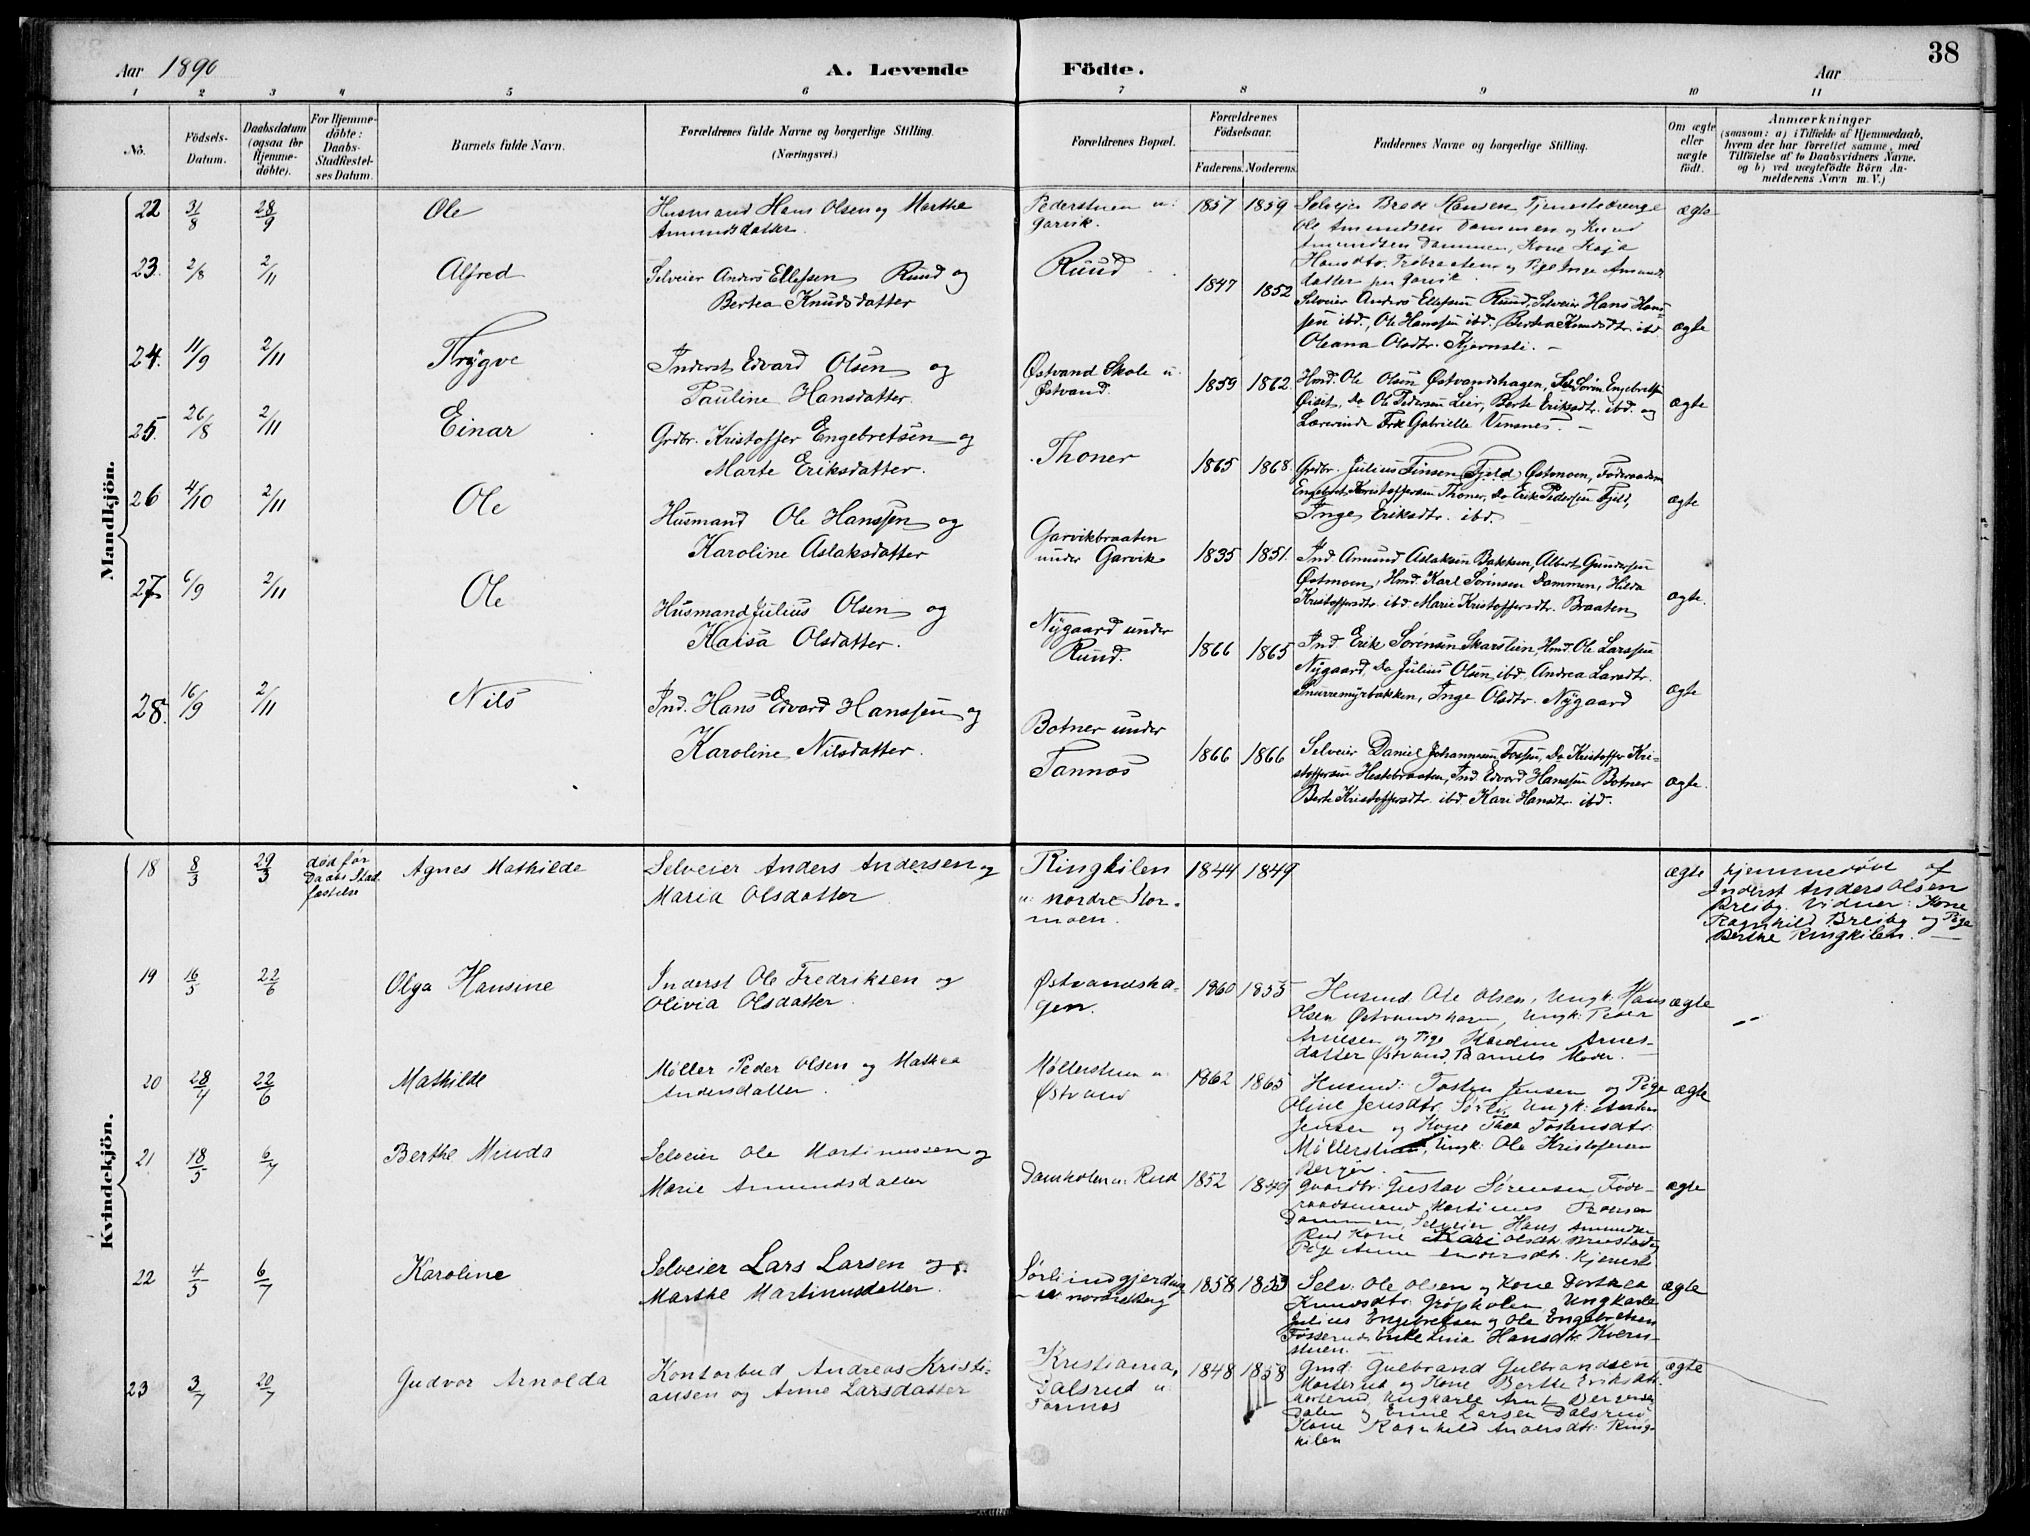 Aar 1890
A. Levende Födte.
Aar
38
1 2 3 4 5 6 7 8 9 10 11
Nô.
Födsels-Datum.
Daabsdatum (ogsaa for Hjemme-döbte).
For Hjemme-döbte: Daabs-Stadfæstel-ses Datum.
Barnets fulde Navn.
Forældrenes fulde Navne og borgerlige Stilling.
(Næringsvei.)
Forældrenes Bopæl.
Forældrenes Födselsaar.
Faderens. Moderens.
Faddernes Navne og borgerlige Stilling.
Om ægte eller uægte födt.
Anmærkninger
(saasom: a) i Tilfælde af Hjemmedaab, hvem der har forrettet samme, med Tilföielse af to Daabsvidners Navne, og b) ved uægtefödte Börn An-melderens Navn m. V.)
Mandkjön.
22 31/8 28/9 Ole
Husmand Hans Olsen og Marthe
Amundsdatter
Pederstuen u:
Garvik.
1857 1859
Selveje Brede Hansen Tjenestedrenge
Ole Amundsen Dammen og Knud
Amundsen Dammen, Kone Kaja
Hansdtr. og Pige Inge Amunds
datter Garvik.
ægte
23. 2/8 2/11 Alfred
Selveier Anders Ellefsen Ruud og
Berthea Knudsdatter
Ruud
1847 1852
Selveier Anders Ellefsen Ruud, Selveier Hans Hans-
sen ibd., Ole Hanssen ibd. Berthea Knudsdtr. ibd.
Oleana Olsdtr. Kjernsli. –
ægte
24. 11/9 2/11 Thrygve
Inderst Edvard Olsen og
Pauline Hansdatter.
Østvand Skole u:
Østvand.
1859 1862.
Hmd. Ole Olsen Østvandshagen, Sel Søren Engebretsen
Do Ole Pedersen Leir, Berte Eriksdtr. ibd. og
Lærerinde Frk Gabrielle Vinsnes. –
ægte
25. 26/8 2/11 Einar
Grdbr. Kristoffer Engebretsen og
Marte Eriksdatter.
Thoner
1865 1868.
Grdbr. Julius Finsen Fjeld, Østmoen, Føderaadsm
Engebret Kristoffersen Thoner, Do Erik Pedersen Fjeld,
Inge Eriksdtr. ibd.
ægte
26 4/10 2/11 Ole
Husmand Ole Hanssen og
Karoline Aslaksdatter
Garvikbraaten
under Garvik
1835 1851.
Ind Amund Aslaksen Bakken, Albert Gundersen
Østmoen, Hmd. Karl Sørensen Dammen, Hilda
Kristoffersdtr. ibd. Marie Kristoffersdtr. Braaten
ægte.
27 6/9 2/11 Ole
Husmand Julius Olsen og
Kaisa Olsdatter.
Nygaard under
Ruud.
1866 1865
Ind Erik Sørensen Skarstein, Hmd. Ole Larssen
Nygaard, Do Julius Olsen ibd. Andrea Larsdtr.
Snurremyrbakken, Inge Olsdtr. Nygaard
ægte
28. 16/9 2/11 Nils
Ind. Hans Edvard Hanssen og
Karoline Nilsdatter.
Botner under
Tannæs
1866 1866
Selveier Daniel Johannesen Fossen, Do Kristoffer Kri-
stoffersen Hestebraaten, Ind. Edvard Hanssen Botner
Berte Kristoffersdtr. ibd. Kari Hansdtr. ibd.
ægte.
Kvindekjön.
18 8/3 29/3 død før
Daabs Stad
fæstelse
Agnes Mathilde
Selveier Anders Andersen og
Maria Olsdatter
Ringkilen
u: nordre Stor-
moen.
1844 1849
ægte
hjemmedøbt af
Inderst Anders Olsen
Breiby. Vidner: Kone
Ragnhild Breiby og Pige
Berthe Ringkilen. –
19 16/5 22/6 Olga Hansine
Inderst Ole Fredriksen og
Olivia Olsdatter.
Østvandsha-
gen.
1860 1855
Husmd Ole Olsen, Ungk: Hans
Olsen Østvandshagen, Ungk: Peder
Arnesen og Pige Karoline Arnes-
datter Østvand, Barnets Moder. –
ægte
20 28/4 22/6 Mathilde
Møller Peder Olsen og Mathea
Andersdatter.
Møllerstuen u:
Østvand
1862 1865
Husmd: Tosten Jensen og Pige
Oline Jensdtr. Sørli, Ungk:
Jensen og Kone Thea Tostensdtr.
Møllerstuen, Ungk: Ole Kristofersen
Berger.
ægte
21 18/5 6/7 Berthe Minda
Selveier Ole Martinussen og
Marie Amundsdatter
Damholen u: Rud
1852 1849
Gaardbr: Gustav Sørensen, Føde-
raadsmand Martines
Dammen, Selveier Hans Amundsen
Rud Kone Kari Olsdtr.
Pige Anne
ægte
22 4/5 6/7 Karoline
Selveier Lars Larsen og
Marthe Martinusdatter.
Sørliindgjerding
u nordreberg
1858 1853
Selv: Ole Olsen og Kone Dorthea
Knudsdtr. Grøpholen, Ungkarle
Julius Engebretsen og Ole Engebretsen
Enke Lina Hansdtr. Kvern-
stuen. –
ægte
23 3/7 20/7 Gudvor Arnolda
Kontorbud Andreas Kristi-
ansen og Anne Larsdatter
Kristiania,
Dalsrud u
Formoes
1848 1858
Gmd: Gulbrand Gulbrandsen
Morterud og Kone Berthe Eriksdtr.
Morterud, Ungkarle Arnt
dalen og Larsen Dalsrud
Kone Ragnhild Andersdtr. Ring-
kilen
ægte